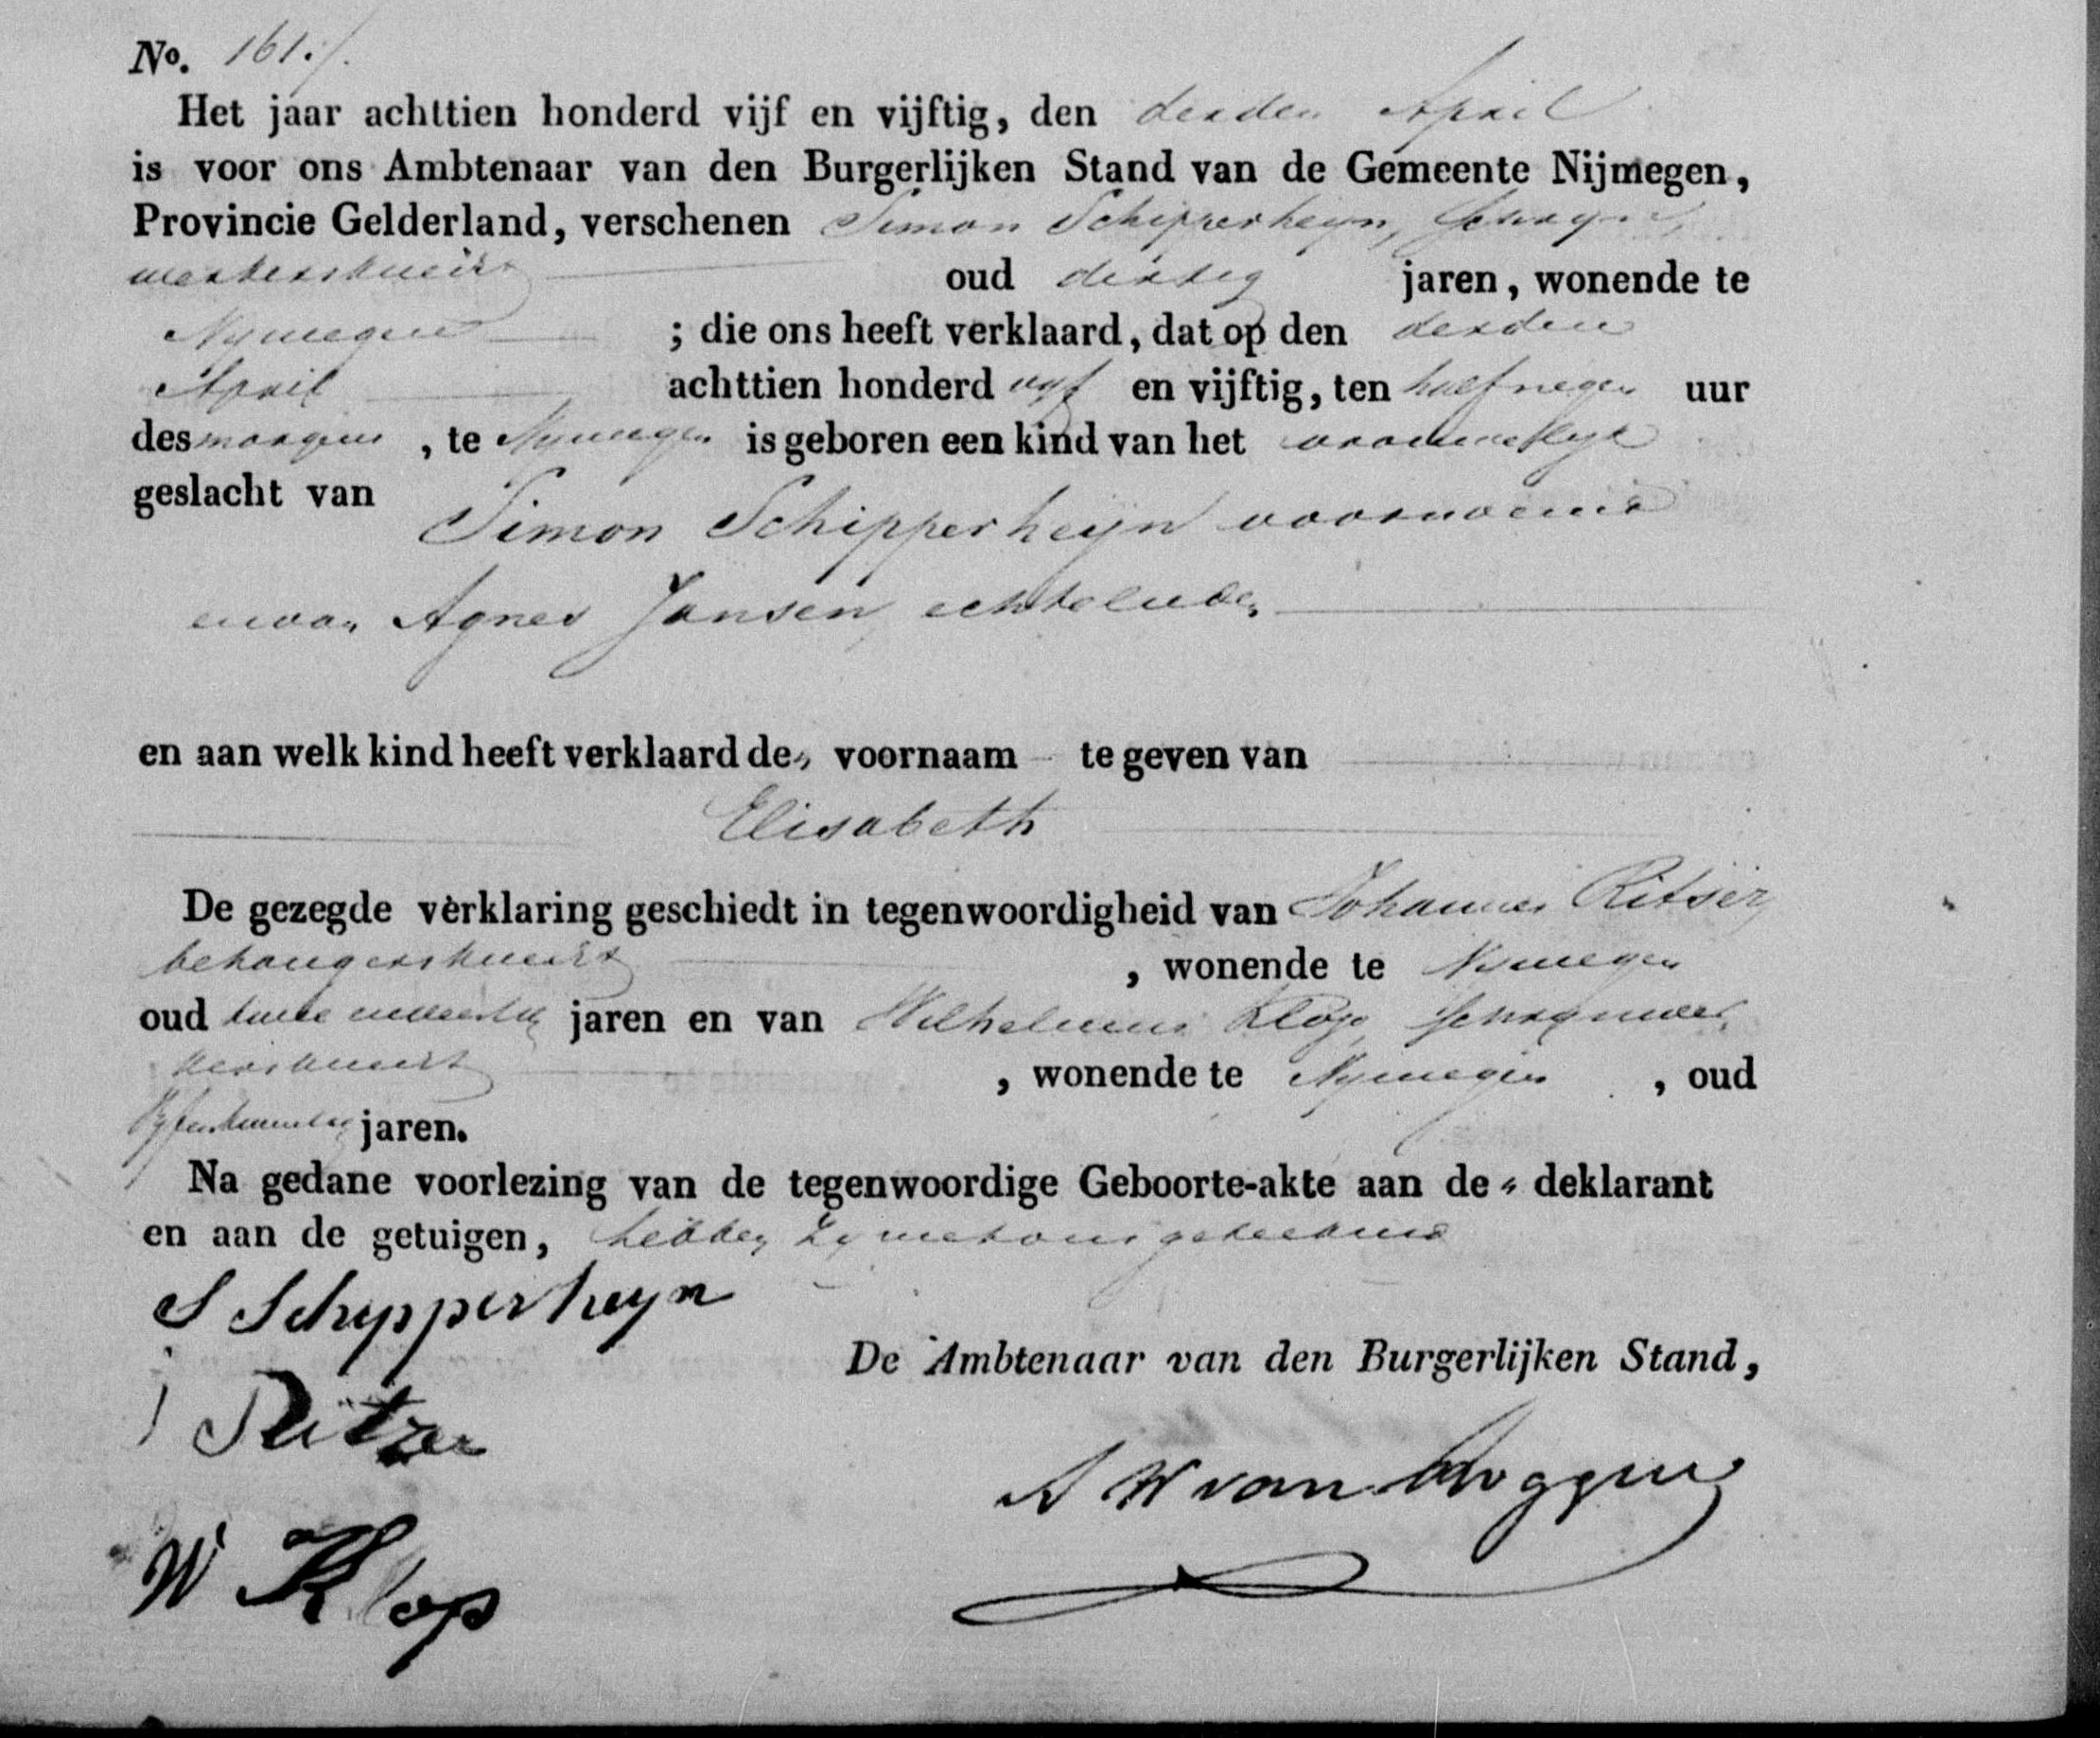 No. 161./.
Het jaar achttien honderd vijf en vijftig, den derden April
is voor ons Ambtenaar van den Burgerlijken Stand van de Gemeente Nijmegen,
Provincie Gelderland, verschenen Simon Schipperheijn, schrijn
werkersknecht oud dertig jaren, wonende te
Nymegen ; die ons heeft verklaard, dat op den derden
April achttien honderd vyf en vijftig, ten half negen uur
des morgens , te Nymegen is geboren een kind van het vrouwelijk
geslacht van Simon Schipperheijn voornoemd
en van Agnes Jansen, echtelieden
en aan welk kind heeft verklaard de, voornaam te geven van
Elisabeth
De gezegde verklaring geschiedt in tegenwoordigheid van Johannes Ritser,
behangersknecht , wonende te Nymegen
oud twee en veertig jaren en van Wilhelmus Klop, schrijnwer
kersknecht , wonende te Nymegen , oud
Vyfentwintig jaren.
Na gedane voorlezing van de tegenwoordige Geboorte-akte aan de " deklarant
en aan de getuigen, hebben zy met ons geteekend
S Schipperheyn
De Ambtenaar van den Burgerlijken Stand,
J Ritzer
A W van
W Klop